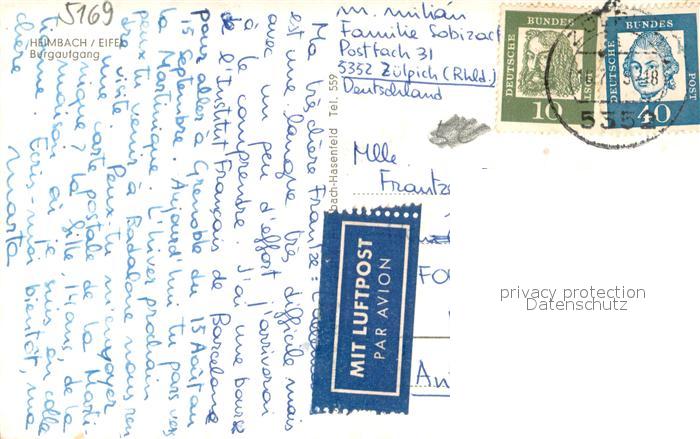 5169
HEIMBACH / EIFEL
Burgaufgang
Ma très chère Frantze :
est une langue très difficile mais
avec un peu d'effort j'arriverai
à la comprendre. J'ai une bourse
de l'Institut Français de Barcelone
pour aller à Grenoble du 15 Août au
15 septembre. Aujourd'hui tu pars vers
la Martinique. L'hiver prochain
peux tu venir à Badalone nous ren
visite. Peux tu m'envoyer
une carte postale de la Marti-
nique? La fille, 14 ans, de la
maison où je suis en colle
Ecris-moi bientôt, ma
chère
Marta
bach-Hasenfeld Tel. 559
M. Milián
Familie Sobizack
Postfach 31
5352 Zülpich (Rhld.)
Deutschland
Mlle
Frantz
FO
An
MIT LUFTPOST
PAR AVION
DEUTSCHE BUNDESPOST
10
DEUTSCHE BUNDES POST
40
5352
-18
privacy protection
Datenschutz